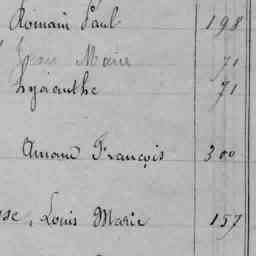 Romain Paul 198
Jean Marie 71
hyacinthe 71
Amand François 300
se, Louis Marie 157